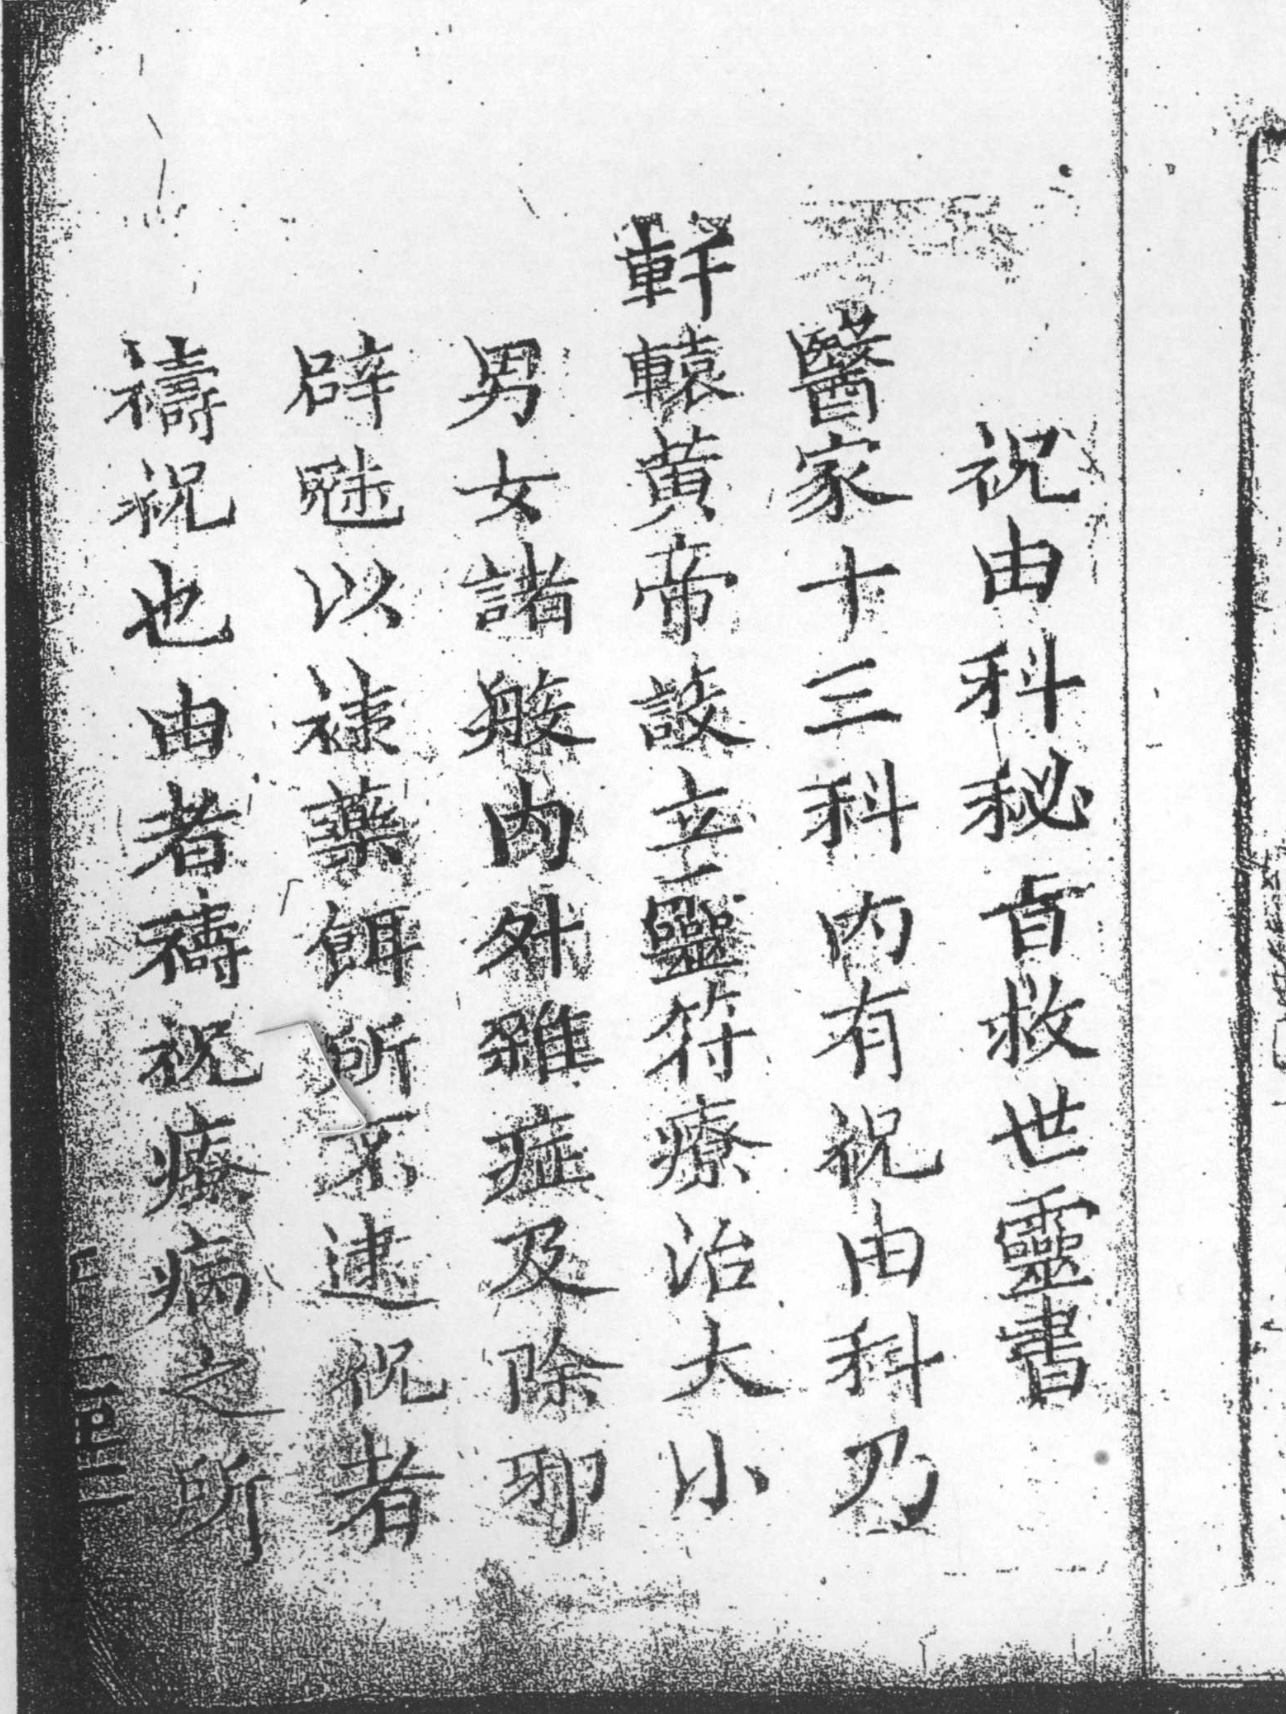 祝由科秘旨救世靈書
醫家十三科內有祝由科乃
軒轅黃帝設立靈符療治大小
男女諸般內外雜症及除邪
辟魅以禆藥餌所不逮祝者
禱祝也由者禱祝療病之所